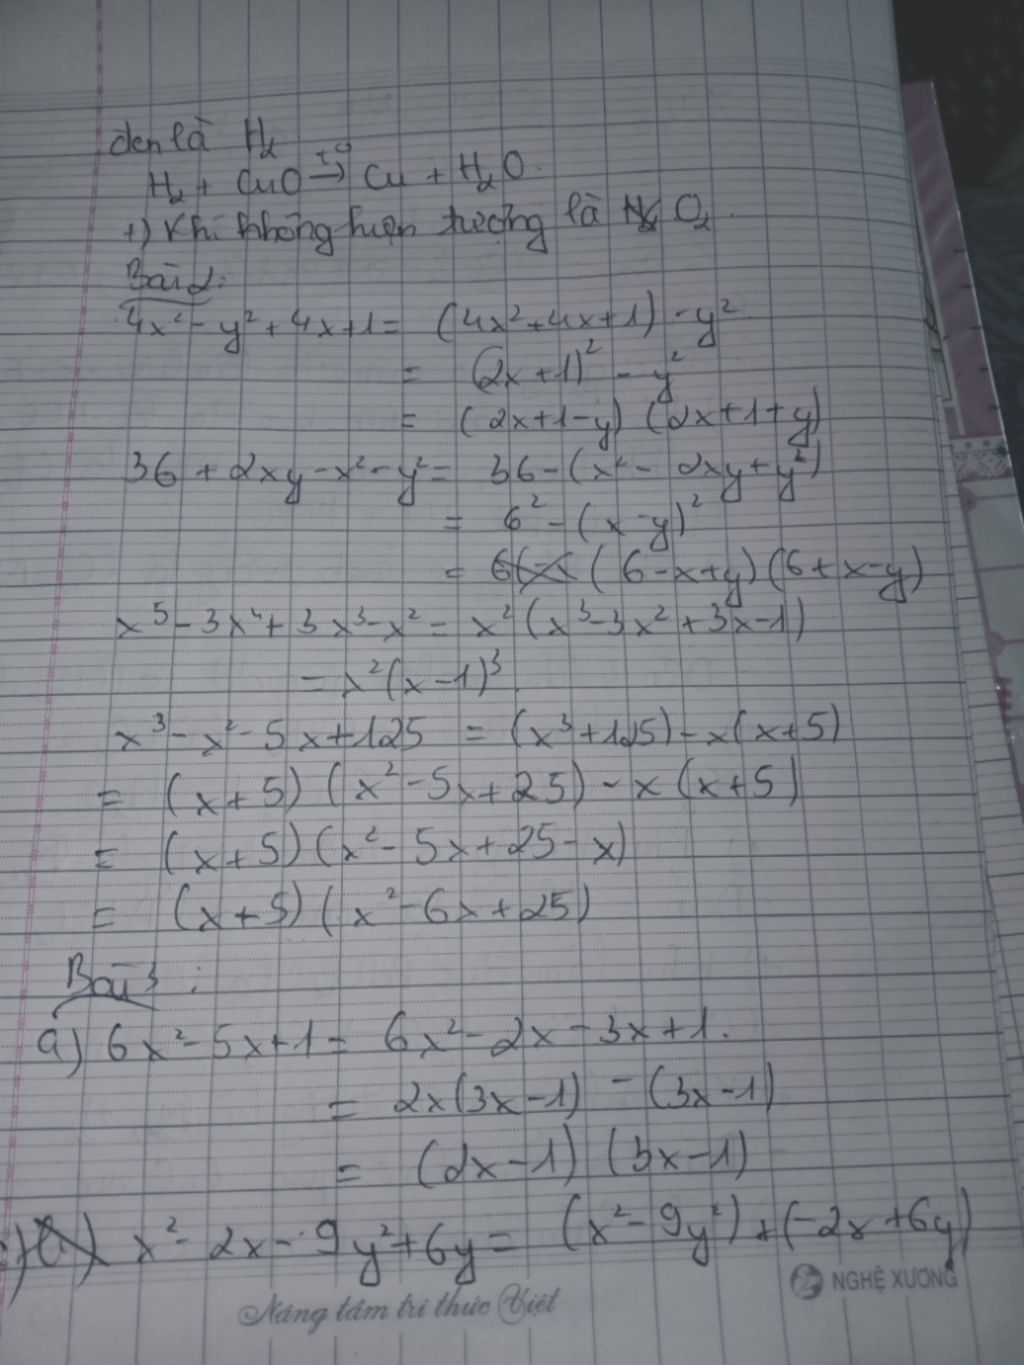 đen là H₂
H₂ + CuO →(t°) Cu + H₂O.
+) Khí không hiện tượng là O₂.
Bài 2:
4x² - y² + 4x + 1 = (4x² + 4x + 1) - y²
= (2x + 1)² - y²
= (2x + 1 - y) (2x + 1 + y)
36 + 2xy - x² - y² = 36 - (x² - 2xy + y²)
= 6² - (x - y)²
= (6 - x + y) (6 + x - y)
x⁵ - 3x⁴ + 3x³ - x² = x² (x³ - 3x² + 3x - 1)
= x² (x - 1)³.
x³ - x² - 5x + 125 = (x³ + 125) - x(x + 5)
= (x + 5) (x² - 5x + 25) - x (x + 5)
= (x + 5) (x² - 5x + 25 - x)
= (x + 5) (x² - 6x + 25)
Bài 3:
a) 6x² - 5x + 1 = 6x² - 2x - 3x + 1.
= 2x(3x - 1) - (3x - 1)
= (2x - 1) (3x - 1)
x² - 2x - 9y² + 6y = (x² - 9y²) + (-2x + 6y)
NGHỆ XƯƠNG
Nâng tầm tri thức Việt